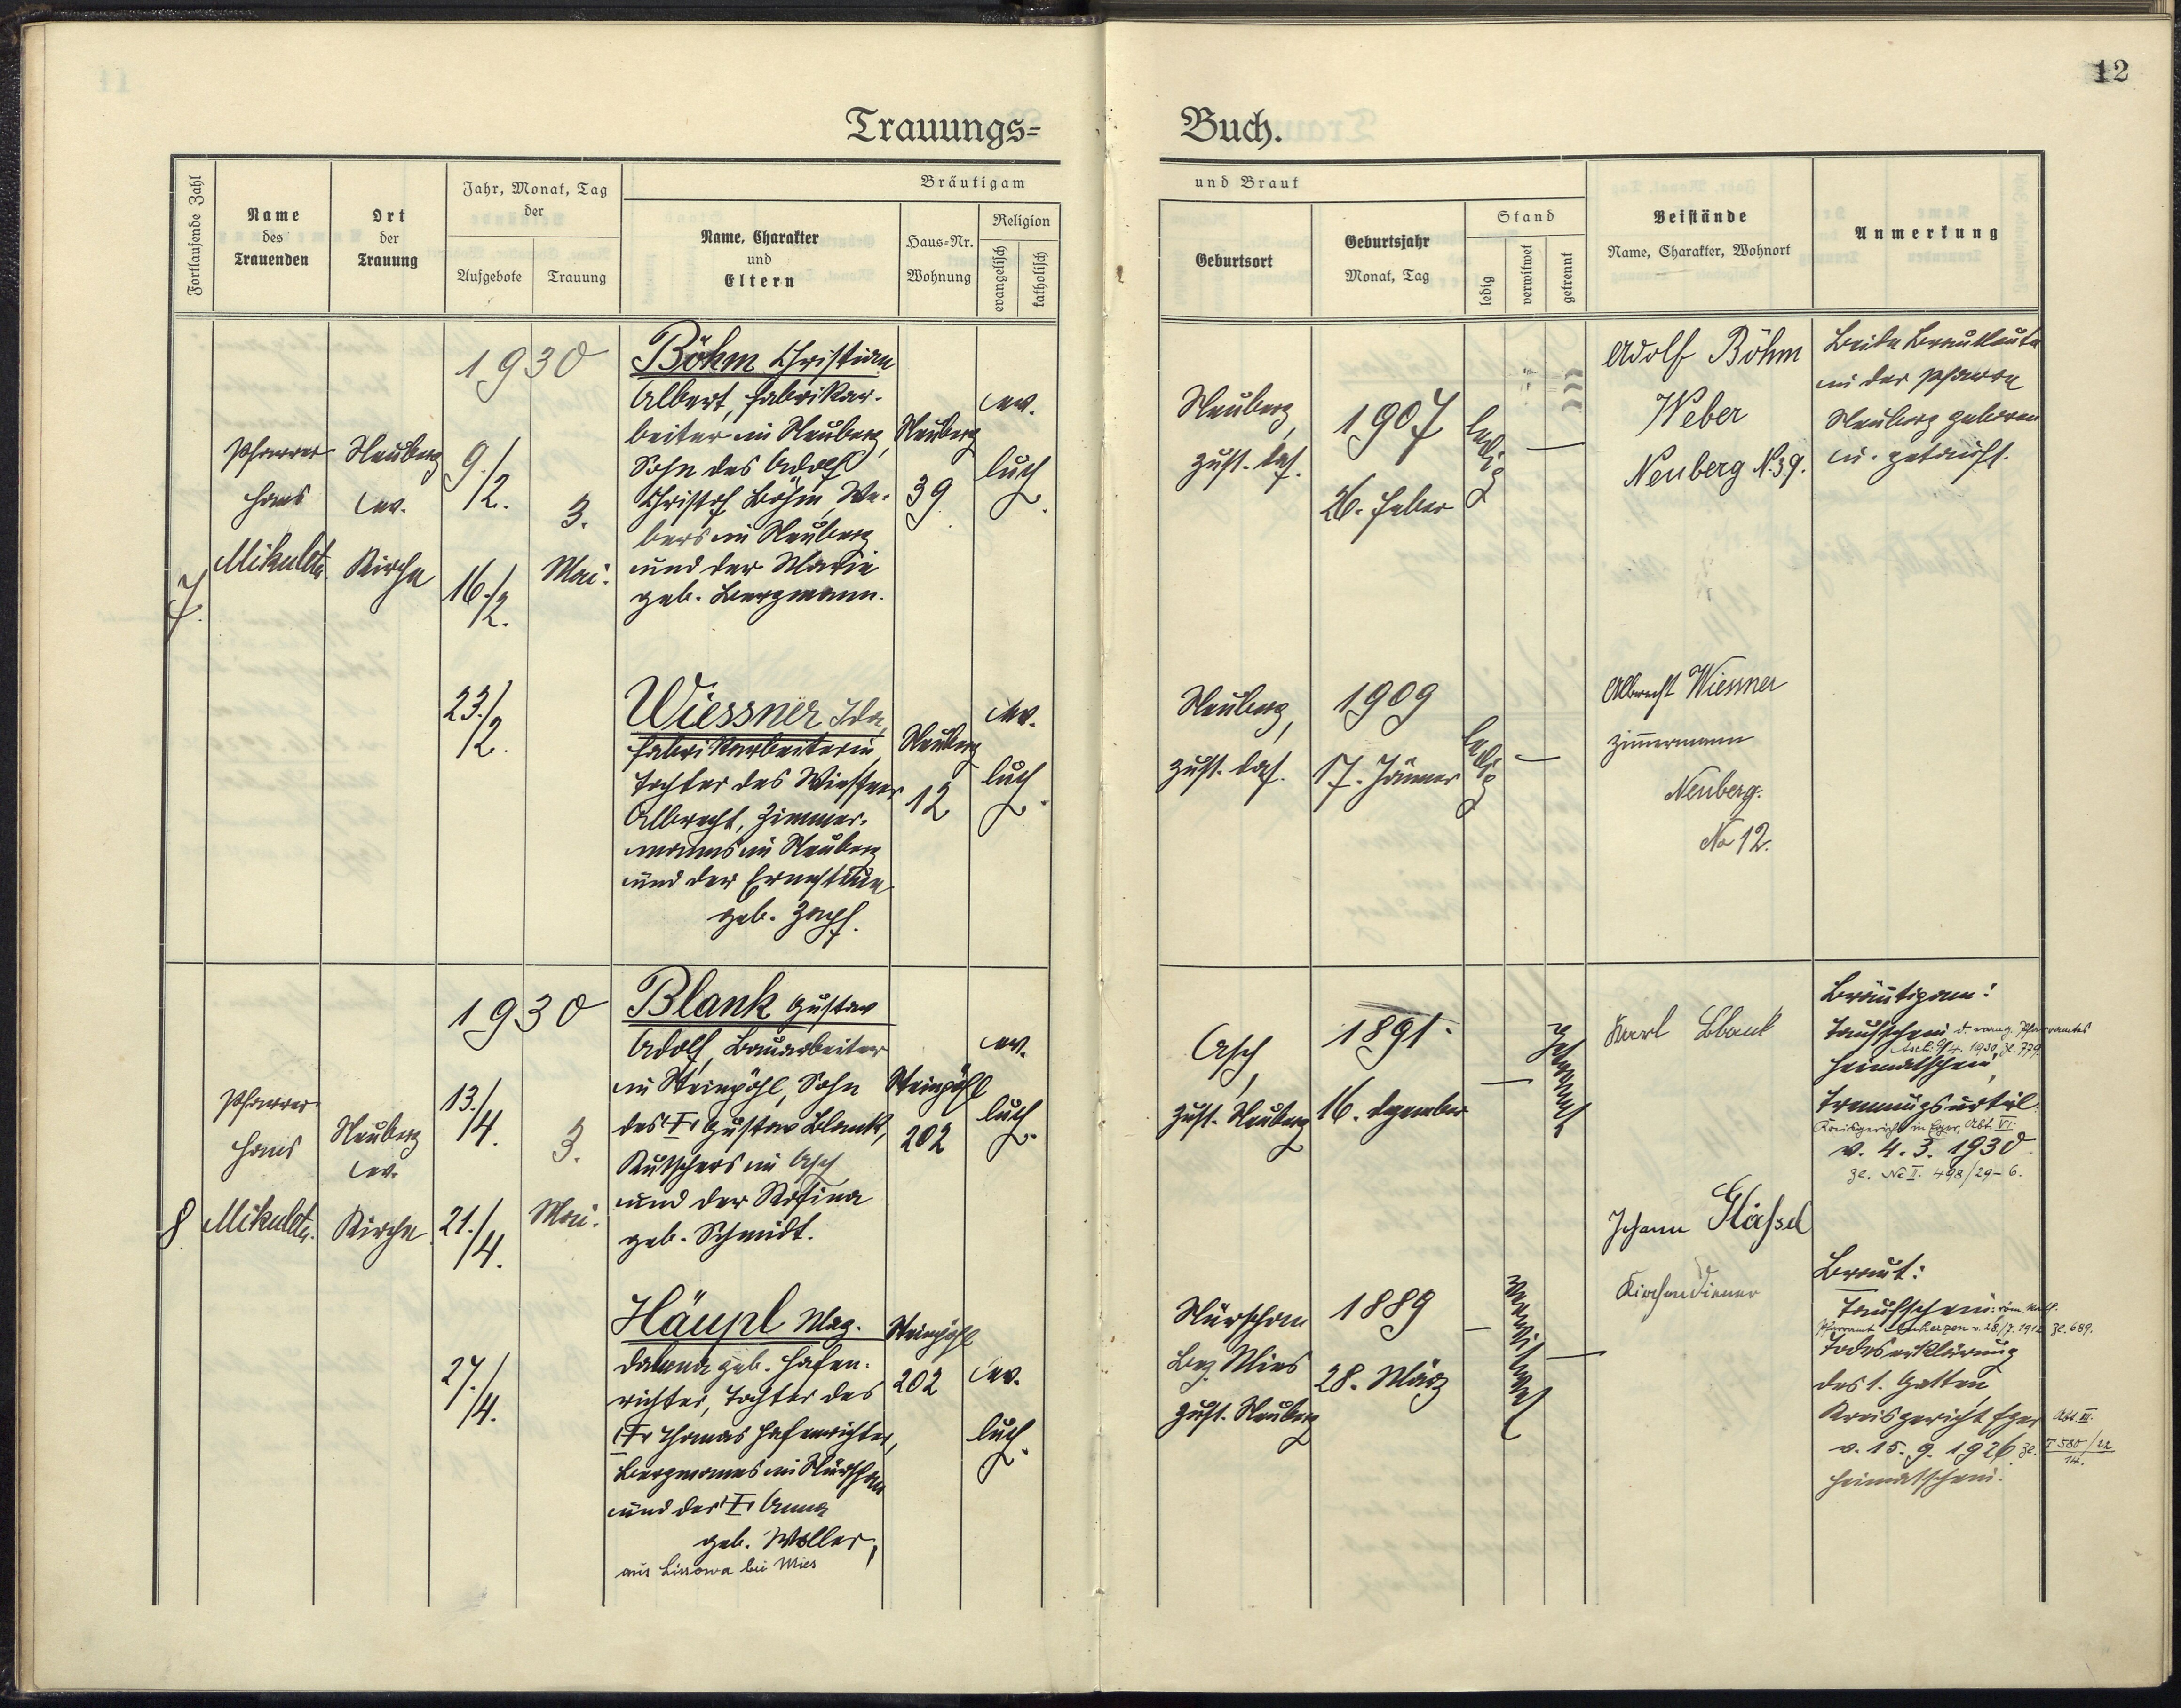 12
Trauungs=
Buch.
Fortlaufende Zahl
Name
des
Trauenden
Ort
der
Trauung
Jahr, Monat, Tag
der
Aufgebote
Trauung
Bräutigam
Name, Charakter
und
Eltern
Haus=Nr.
Wohnung
Religion
evangelisch
katholisch
und Braut
Geburtsort
Geburtsjahr
Monat, Tag
Stand
ledig
verwitwet
getrennt
Beistände
Name, Charakter, Wohnort
Anmerkung
7.
Pfarrer
Hans
Mikuletz
Neuberg
ev.
Kirche
1930
9./2.
16./2.
23./2.
3.
Mai.
Böhm Christian
Albert, Fabrikar-
beiter in Neuberg,
Sohn des Adolf
Christof Böhm, We-
bers in Neuberg
und der Marie
geb. Bergmann.
Neuberg
39
ev.
luth.
Neuberg,
zust. das.
1907
26. Feber
ledig
Adolf Böhm
Weber
Neuberg N.39.
Beide Brautleute
in der Pfarre
Neuberg geboren
u. getauft.
Wiessner Ida,
Fabrikarbeiterin,
Tochter des Wiessner
Albrecht, Zimmer-
manns in Neuberg
und der Ernestine
geb. Zapf.
Neuberg
12
ev.
luth.
Neuberg,
zust. das.
1909
17. Jänner
ledig
Albrecht Wiessner
Zimmermann
Neuberg.
No 12.
8
Pfarrer
Hans
Mikuletz.
Neuberg
ev.
Kirche
1930
13./4.
21./4.
27./4.
3.
Mai.
Blank Gustav
Adolf, Bauarbeiter
in Steinpöhl, Sohn
des † Gustav Blank,
Kutschers in Asch
und der Rosina
geb. Schmidt.
Steinpöhl
202
ev.
luth.
Asch,
zust. Neuberg
1891.
16. Dezember
getrennt
Karl Blank
Bräutigam:
Taufschein d. evang. Pfarramtes
Asch: 9/4. 1930, Zl. 779.
Heimatschein,
Trennungsurteil
Kreisgericht in Eger, Abt. VI.
v. 4. 3. 1930
Zl. Nc II. 498/29-6.
Häupl Mag-
dalena geb. Hafen-
richter, Tochter des
† Thomas Hafenrichter,
Bergmannes in Nürschan
und der † Anna
geb. Woller,
aus Lissowa bei Mies
Steinpöhl
202
ev.
luth.
Nürschan
Bez. Mies
zust. Neuberg
1889
28. März
verwitwet
Johann Gläsel
Kirchendiener
Braut:
Taufschein: röm. kath.
Pfarramt v. 28./7. 1912 Zl. 689.
Todeserklärung
des 1. Gatten,
Kreisgericht Eger Abt. III.
v. 15. 9. 1926 Zl. T 580/22
14.
Heimatschein.